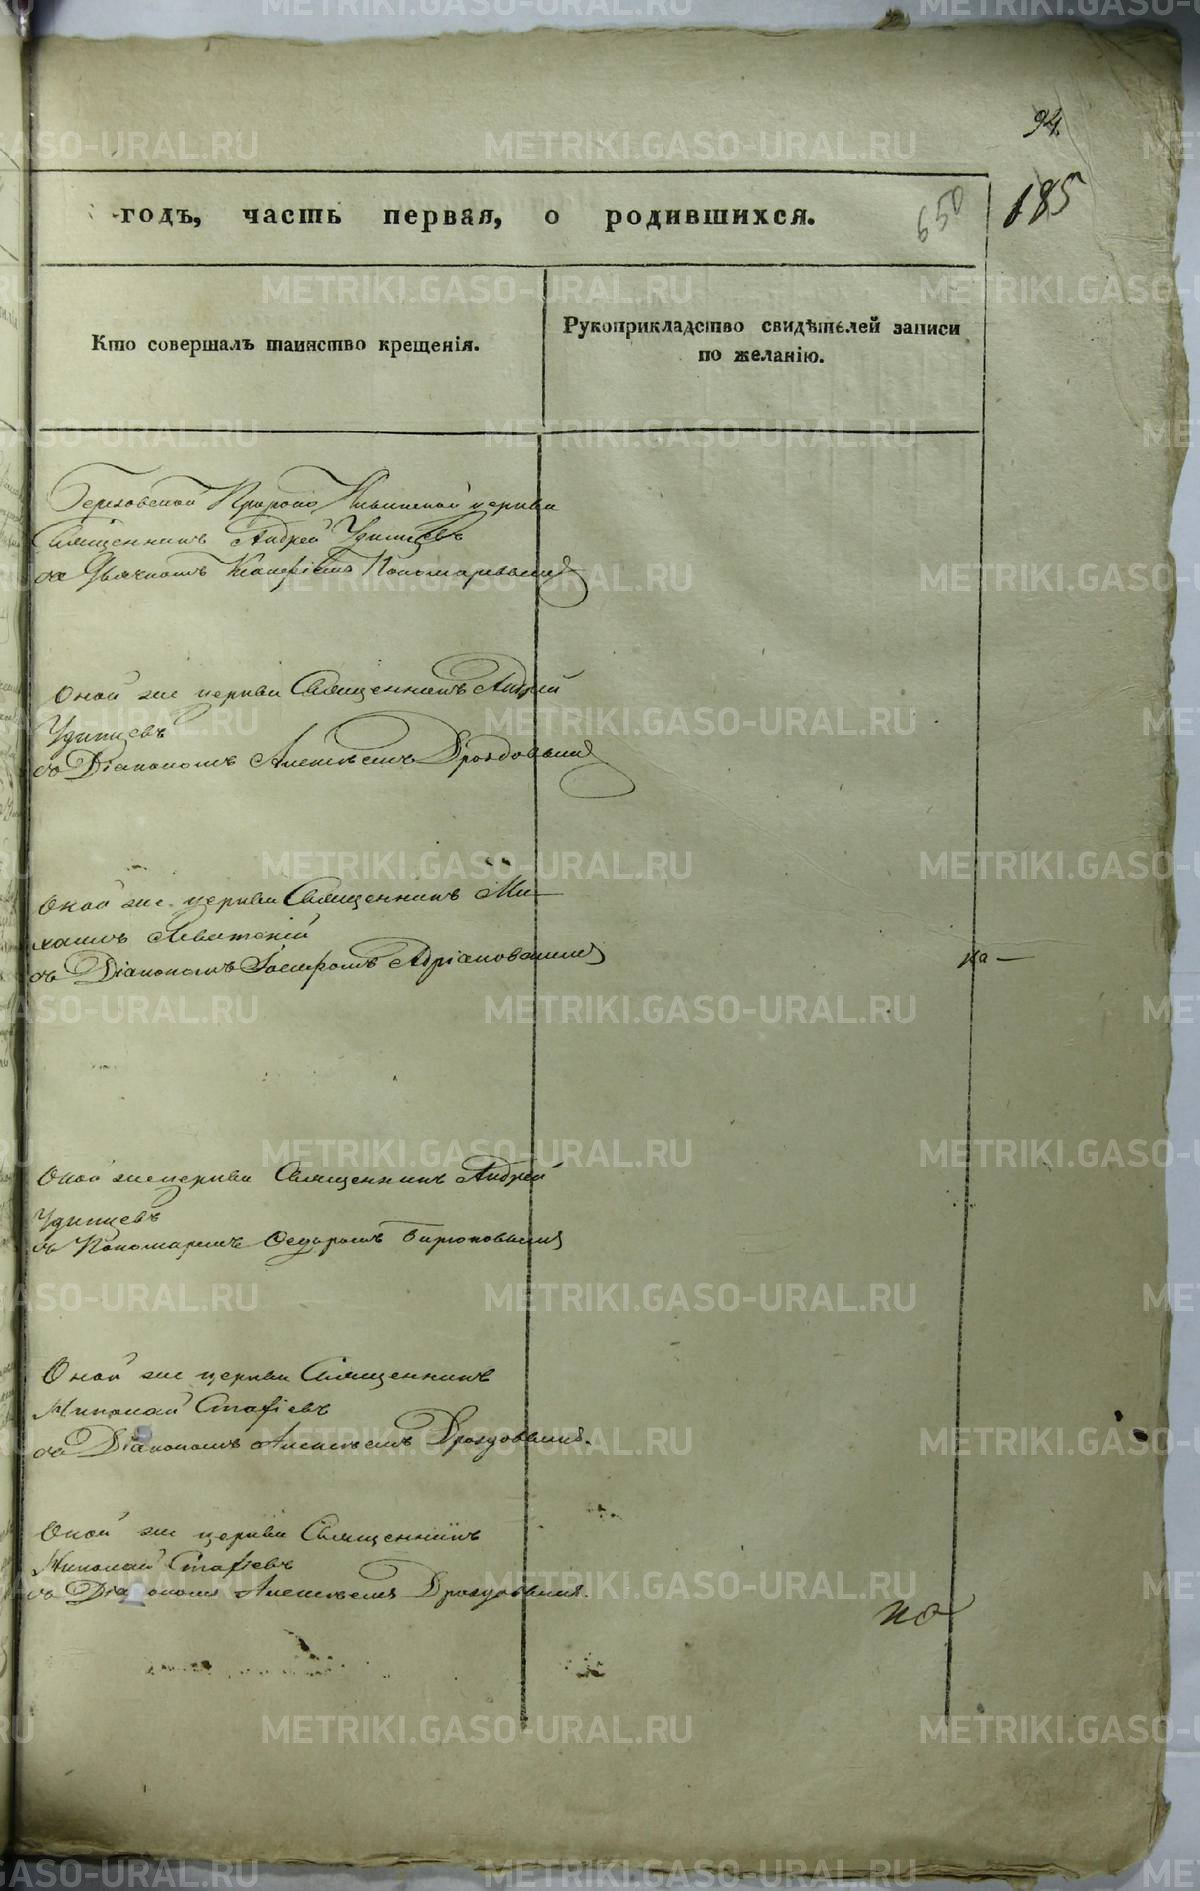 94.
185
650
-годъ, часть первая, о родившихся.
Кто совершалъ таинство крещенія.
Рукоприкладство свидѣтелей записи
по желанію.
Пророко Ильинской церкви
Священникъ Андрей Удинцевъ
съ Дьячкомъ Пономаревымъ
Оной же церкви Священникъ Андрей
Удинцевъ
съ Діакономъ Алексѣемъ Дроздовымъ
Оной же церкви Священникъ Ми-
хаилъ Левитскій
съ Діакономъ Іосифомъ Адріановымъ
на—
Оной же церкви Священникъ Андрей
Удинцевъ
съ Пономаремъ Ѳедоромъ Бирюковымъ
Оной же церкви Священникъ
Николай Стафіевъ
съ Діакономъ Алексѣемъ Дроздовымъ.
Оной же церкви Священникъ
Николай Стафіевъ
съ Діакономъ Алексѣемъ Дроздовымъ.
но
METRIKI.GASO-URAL.RU